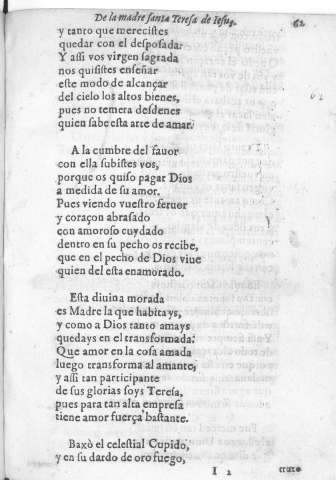 De la madre santa Teresa de Iesus. 62
y tanto que merecistes
quedar con el desposada:
Y assi vos virgen sagrada
nos quisistes enseñar
este modo de alcançar
del cielo los altos bienes,
pues no temera desdenes
quien sabe esta arte de amar.
A la cumbre del fauor
con ella subistes vos,
porque os quiso pagar Dios
a medida de su amor.
Pues viendo vuestro feruor
y coraçon abrasado
con amoroso cuydado
dentro en su pecho os recibe,
que en el pecho de Dios viue
quien del esta enamorado.
Esta diuina morada
es Madre la que habitays,
y como a Dios tanto amays
quedays en el transformada:
Que amor en la cosa amada
luego transforma al amante,
y assi tan participante
de sus glorias soys Teresa,
pues para tan alta empresa
tiene amor fuerça bastante.
Baxò el celestial Cupido,
y en su dardo de oro fuego,
I 2